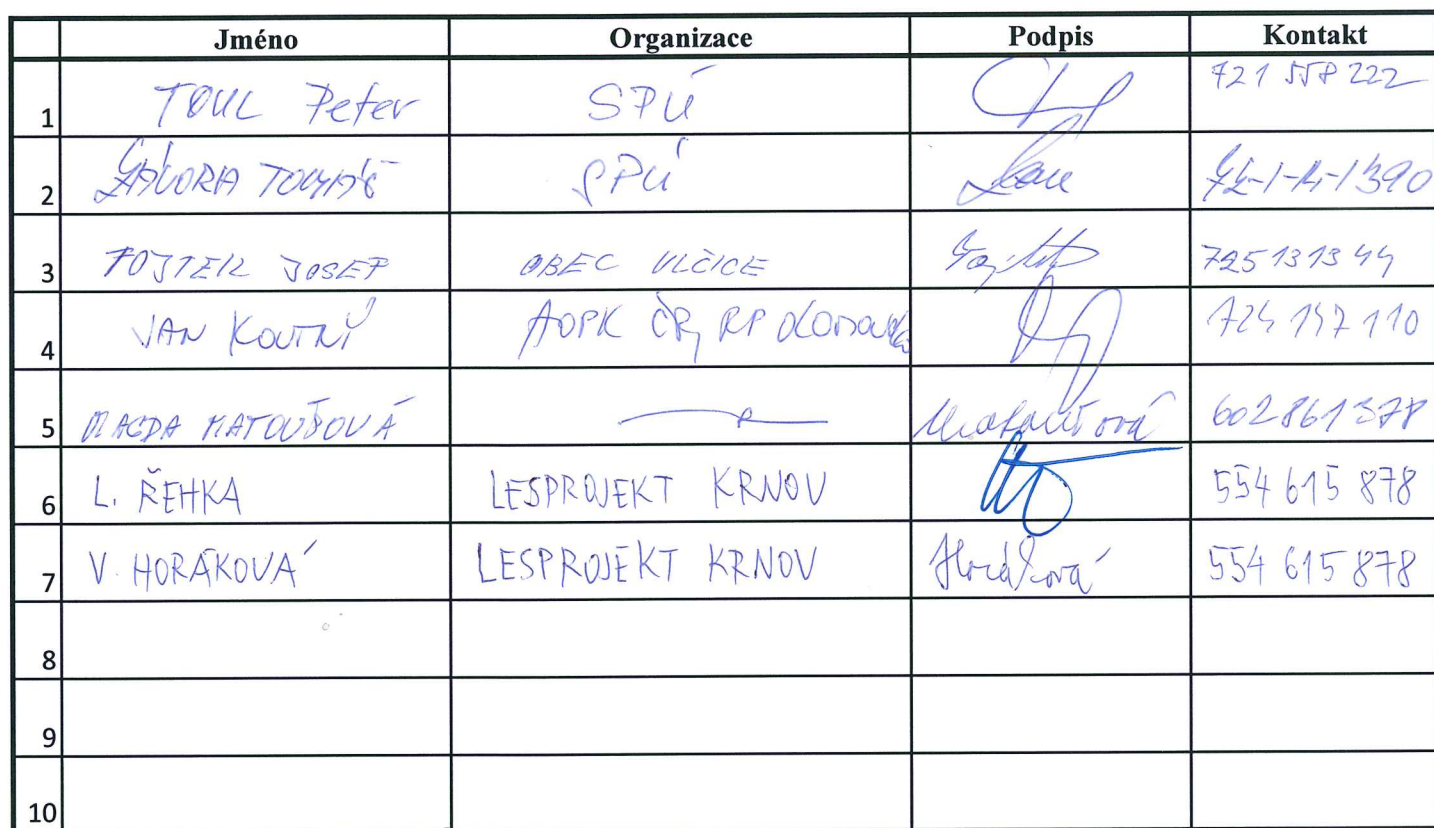 Jméno Organizace Podpis Kontakt
1 TOUL Peter SPÚ 721 558 222
2 TOMÁŠ SPÚ
3 FOJTEK JOSEF OBEC VLČICE 725 131 344
4 JAN KOUTNÝ AOPK ČR, RP 724 147 110
5 MAGDA MATOUŠOVÁ Matoušová 602 861 378
6 L. ŘEHKA LESPROJEKT KRNOV 554 615 878
7 V. HORÁKOVÁ LESPROJEKT KRNOV Horáková 554 615 878
8
9
10